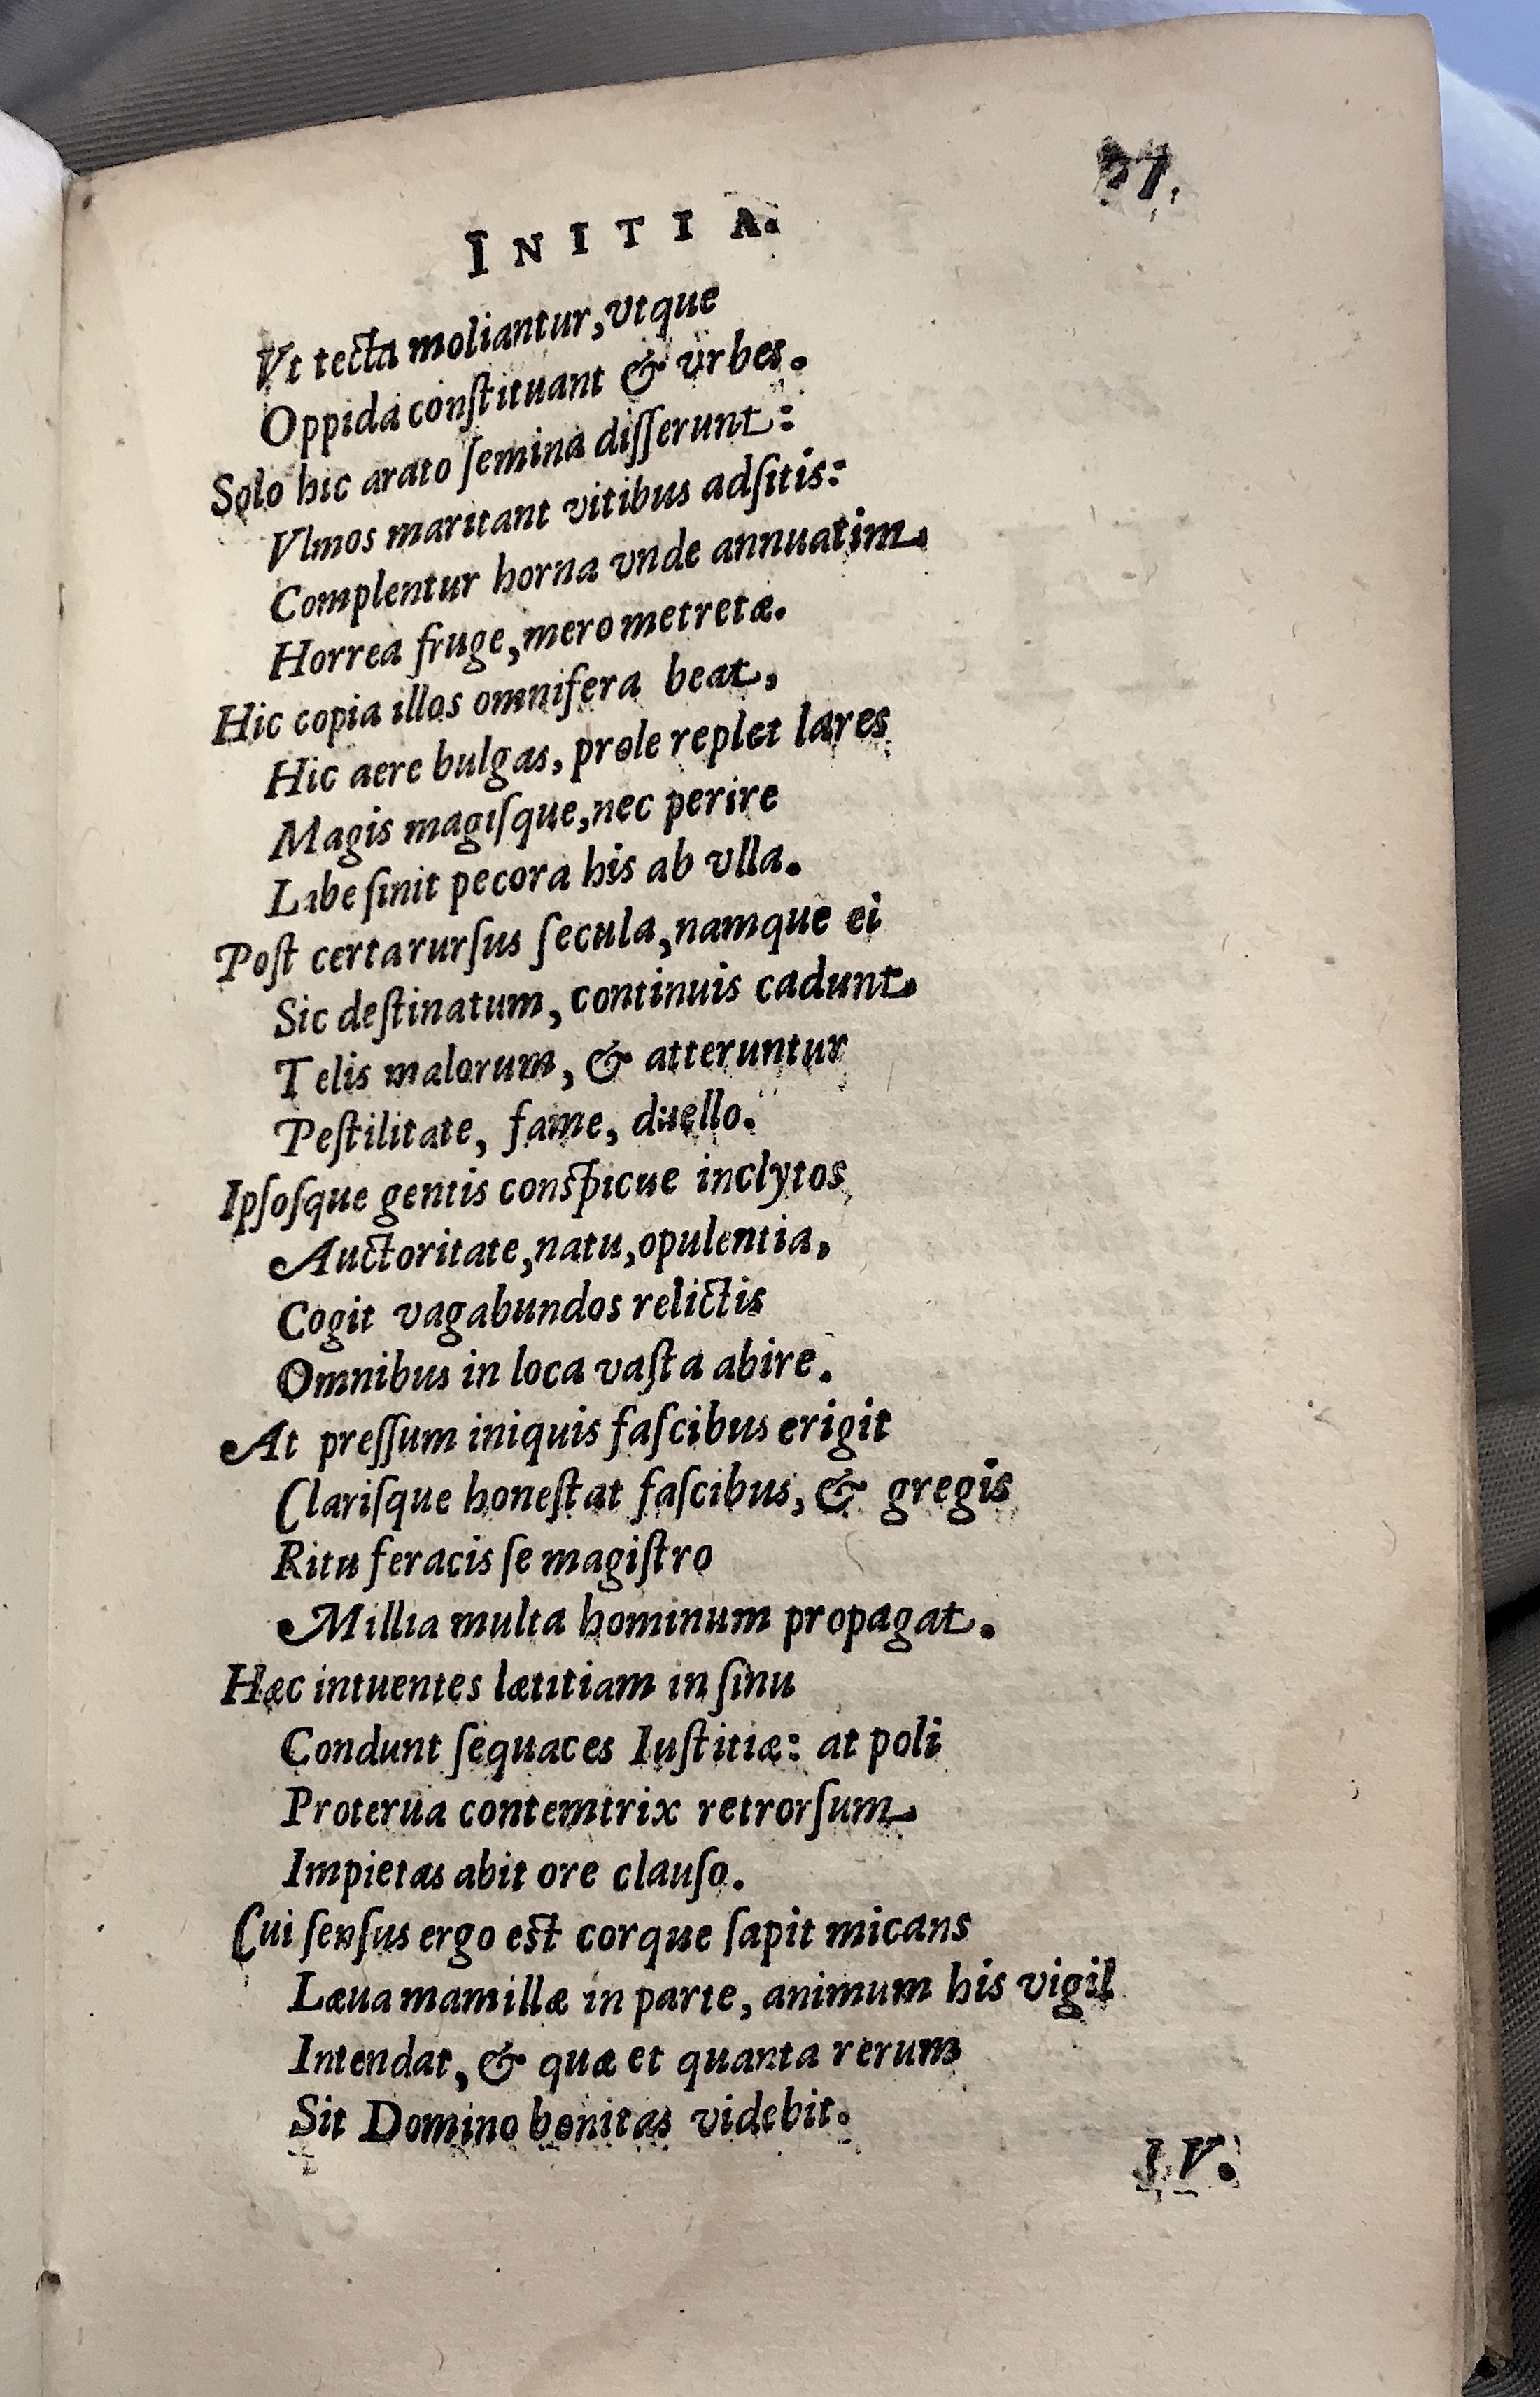 37.
INITIA.
Vt tecta moliantur, vtque
Oppida conſtituant & vrbes.
Solo hic arato ſemina diſſerunt:
Vlmos maritant vitibus adſitis:
Complentur horna vnde annuatim
Horrea fruge, mero metretæ.
Hic copia illos omnifera beat,
Hic aere bulgas, prole replet lares
Magis magiſque, nec perire
Labe ſinit pecora his ab vlla.
Poſt certa rurſus ſecula, namque ei
Sic deſtinatum, continuis cadunt
Telis malorum, & atteruntur
Peſtilitate, fame, duello.
Ipſoſque gentis conſpicue inclytos
Auctoritate, natu, opulentia,
Cogit vagabundos relictis
Omnibus in loca vaſta abire.
At preſſum iniquis faſcibus erigit
Clariſque honeſtat faſcibus, & gregis
Ritu feracis ſe magiſtro
Millia multa hominum propagat.
Hæc intuentes lætitiam in ſinu
Condunt ſequaces Iuſtitiæ: at poli
Proterua contemtrix retrorſum
Impietas abit ore clauſo.
Cui ſenſus ergo eſt corque ſapit micans
Læua mamillæ in parte, animum his vigil
Intendat, & quæ et quanta rerum
Sit Domino bonitas videbit.
IV.